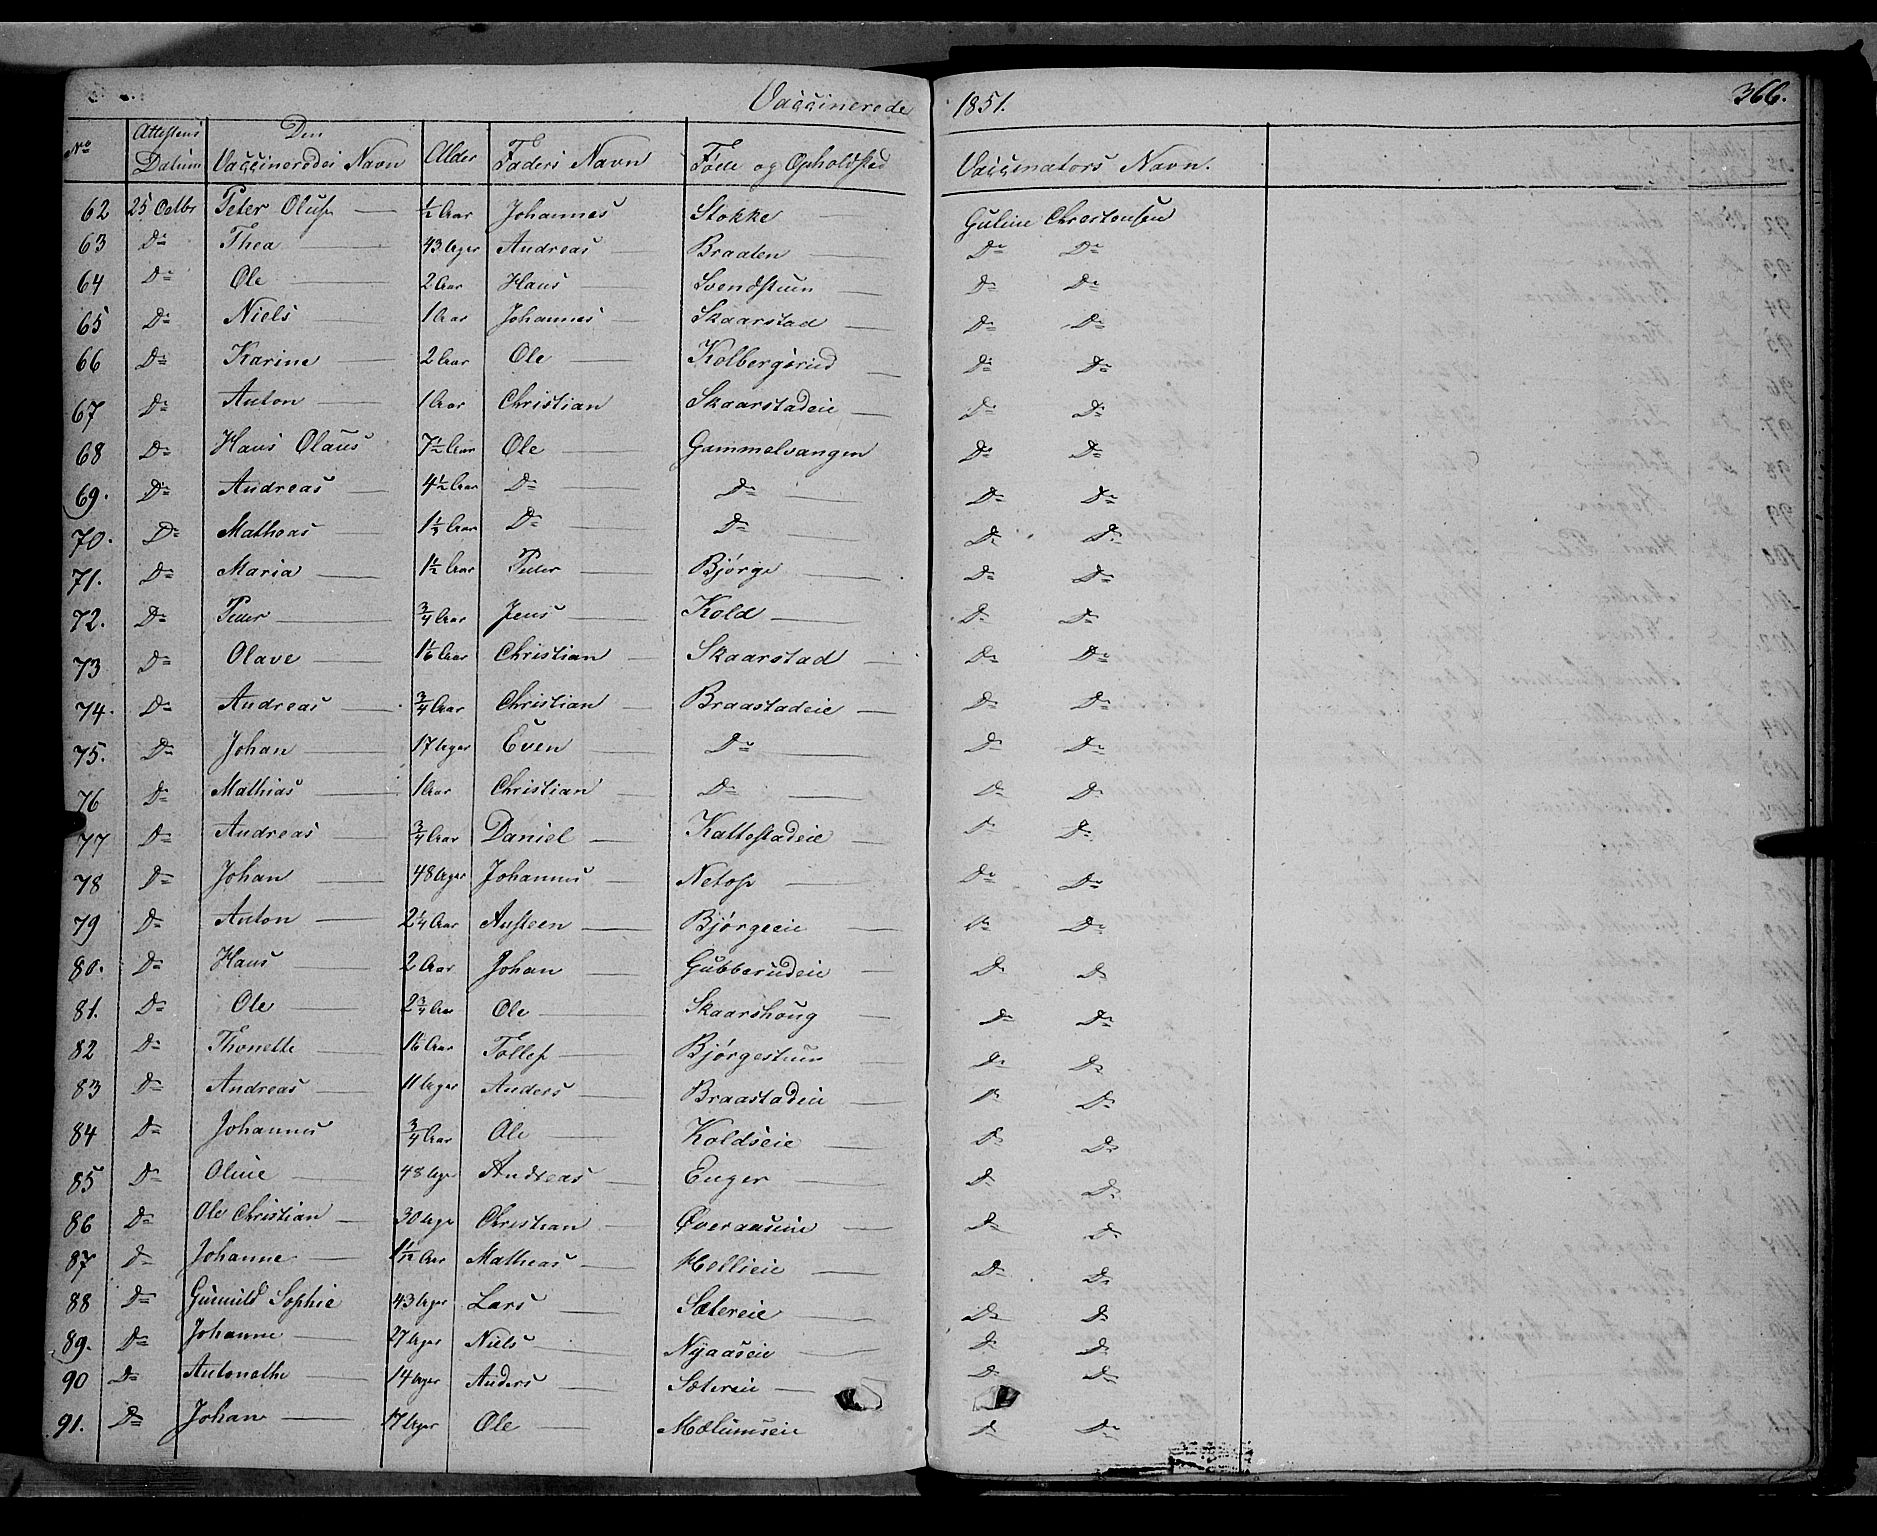 Vaccinerede 1851. 366.
No Attestens Datum Den Vaccineredes Navn Alder Faders Navn Føde og Opholdsted Vaccinators Navn.
62 25 Octbr Peter Oluf — ½ Aar Johannes Stokke — Guline Christensen
63 Do Thea — 43 Uger Andreas — Braaten — Do Do
64 Do Ole — 2 Aar Hans — Svendstuen — Do Do
65 Do Niels — 1 Aar Johannes — Skaarstad — Do Do
66 Do Karine — 2 Aar Ole — Kolbergsrud — Do Do
67 Do Anton — 1 Aar Christian Skaarstadeie — Do Do
68 Do Hans Olaus 7½ Aar Ole — Gammelvangen Do Do
69. Do Andreas — 4½ Aar Do — Do — Do Do
70. Do Matheas 1½ Aar Do — Do — Do Do
71. Do Maria — 1½ Aar Peder — Bjørge — Do Do
72. Do Peder — ¾ Aar Jens — Kold — Do Do
73 Do Olave — 1⅙ Aar Christian — Skaarstad — Do Do
74. Do Andreas — ¾ Aar Christian — Braastadeie — Do Do
75. Do Johan — 17 Uger Even — Do — Do Do
76 Do Mathias — 1 Aar Christian — Do — Do Do
77 Do Andreas — ¾ Aar Daniel — Kattestadeie — Do Do
78 Do Johan — 48 Uger Johannes — — Do Do
79 Do Anton — 2¼ Aar Austeen — Bjørgeeie — Do Do
80. Do Hans — 2 Aar Johan — Gubberudeie — Do Do
81. Do Ole — 2¾ Aar Ole — Skaarshoug — Do Do
82 Do Thonette — 1⅙ Aar Tollef — Bjørgestuen — Do Do
83 Do Andreas — 11 Uger Anders — Braastadeie — Do Do
84 Do Johannes — ¾ Aar Ole — Koldseie — Do Do
85 Do Oline — 48 Uger Andreas — Enger — Do Do
86 Do Ole Christian — 30 Uger Christian — Øveraaseie — Do Do
87 Do Johanne — 1 1/12 Aar Matheas — Hollieie — Do Do
88 Do Gunnild Sophie 43 Uger Lars — Sætereie — Do Do
89. Do Johanne — 27 Uger Niels — Nyaaseie — Do Do
90 Do Antonethe 14 Uger Anders — Sætereie — Do Do
91. Do Johan — 17 Uger Ole — Mælumseie Do Do